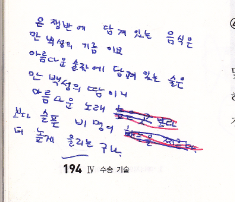 은 쟁반에 담겨 있는 음식은
만 백성의 기름 이요
아름다운 술잔에 담겨 있는 술은
만 백성의 땀 이니
아름다운 노래
보다 슬픈 비명이
더 높게 울리는 구나.
194 Ⅳ 수송 기술